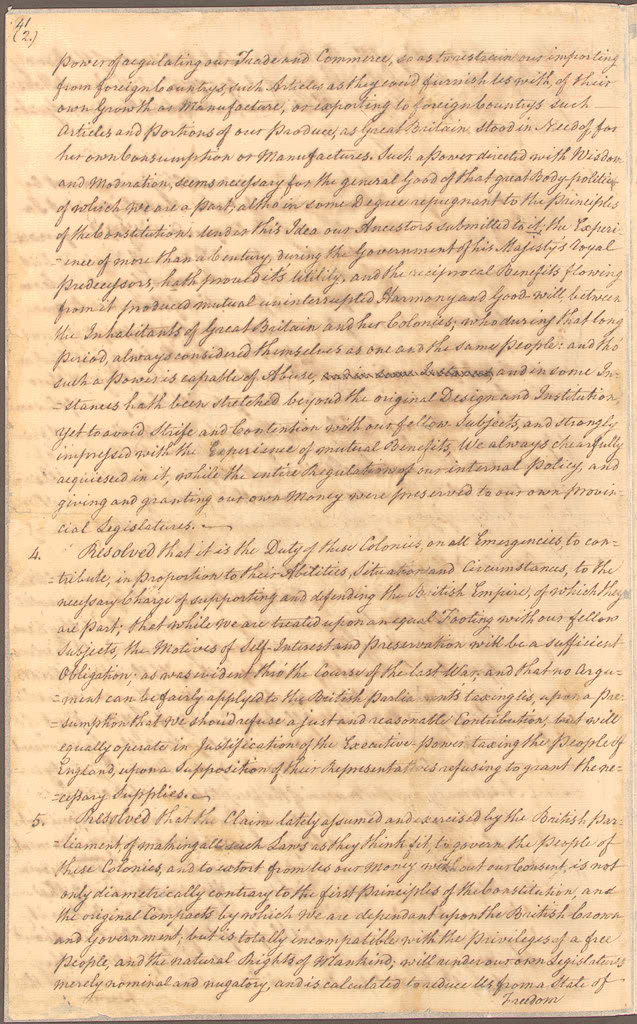 41
(2.)
power of regulating our Trade and Commerce, so as to restrain our importing
from foreign Countrys, such Articles as they cou'd furnish us with, of their
own Growth or Manufacture, or exporting to foreign Countrys such
Articles and Portions of our Produce, as Great Britain stood in Need of, for
her own Consumption or Manufactures. Such a Power directed with Wisdom
and Moderation, seems necessary for the general Good of that great Body-politic
of which we are a Part; altho in some Degree repugnant to the Principles
of the Constitution. Under this Idea our Ancestors submitted to it: the Experi-
=ence of more than a Century, during the Government of his Majesty's Royal
Predecessors, hath proved it's Utility, and the reciprocal Benefits flowing
from it produced mutual uninterrupted Harmony and Good-will, between
the Inhabitants of Great Britain and her Colonies; who during that long
Period, always considered themselves as one and the same People: and tho'
such a Power is capable of Abuse, and in some Instances and in some In-
=stances hath been stretched beyond the original Design and Institution,
Yet to avoid Strife and Contention with our fellow Subjects, and strongly
impressed with the Experience of mutual Benefits, We always chearfully
acquiesced in it, while the entire Regulation of our internal Policy, and
giving and granting our own Money were preserved to our own provin-
cial Legislatures.
4. Resolved that it is the Duty of these Colonies, on all Emergencies, to con-
=tribute, in proportion to their Abilities, Situation and Circumstances, to the
necessary Charge of supporting and defending the British Empire, of which they
are Part; that while we are treated upon an equal Footing with our fellow
Subjects, the Motives of Self-Interest and Preservation will be a sufficient
Obligation; as was evident thro' the Course of the last War; and that no Argu-
=ment can be fairly applyed to the British Parliament's taxing us, upon a Pre-
=sumption that we should refuse a just and reasonable Contribution, but will
equally operate in Justification of the Executive-Power taxing the People of
England, upon a Supposition of their Representatives refusing to grant the ne-
=cessary Supplies.
5. Resolved that the Claim lately assumed and exercised by the British Par-
=liament, of making all such Laws as they think fit, to govern the People of
these Colonies, and to extort from us our Money without our Consent, is not
only diametrically contrary to the first Principles of the Constitution, and
the original Compacts by which we are dependant upon the British Crown
and Government; but is totally incompatible with the Privileges of a free
People, and the natural Rights of Mankind; will render our own Legislatures
merely nominal and nugatory, and is calculated to reduce us from a State of
Freedom